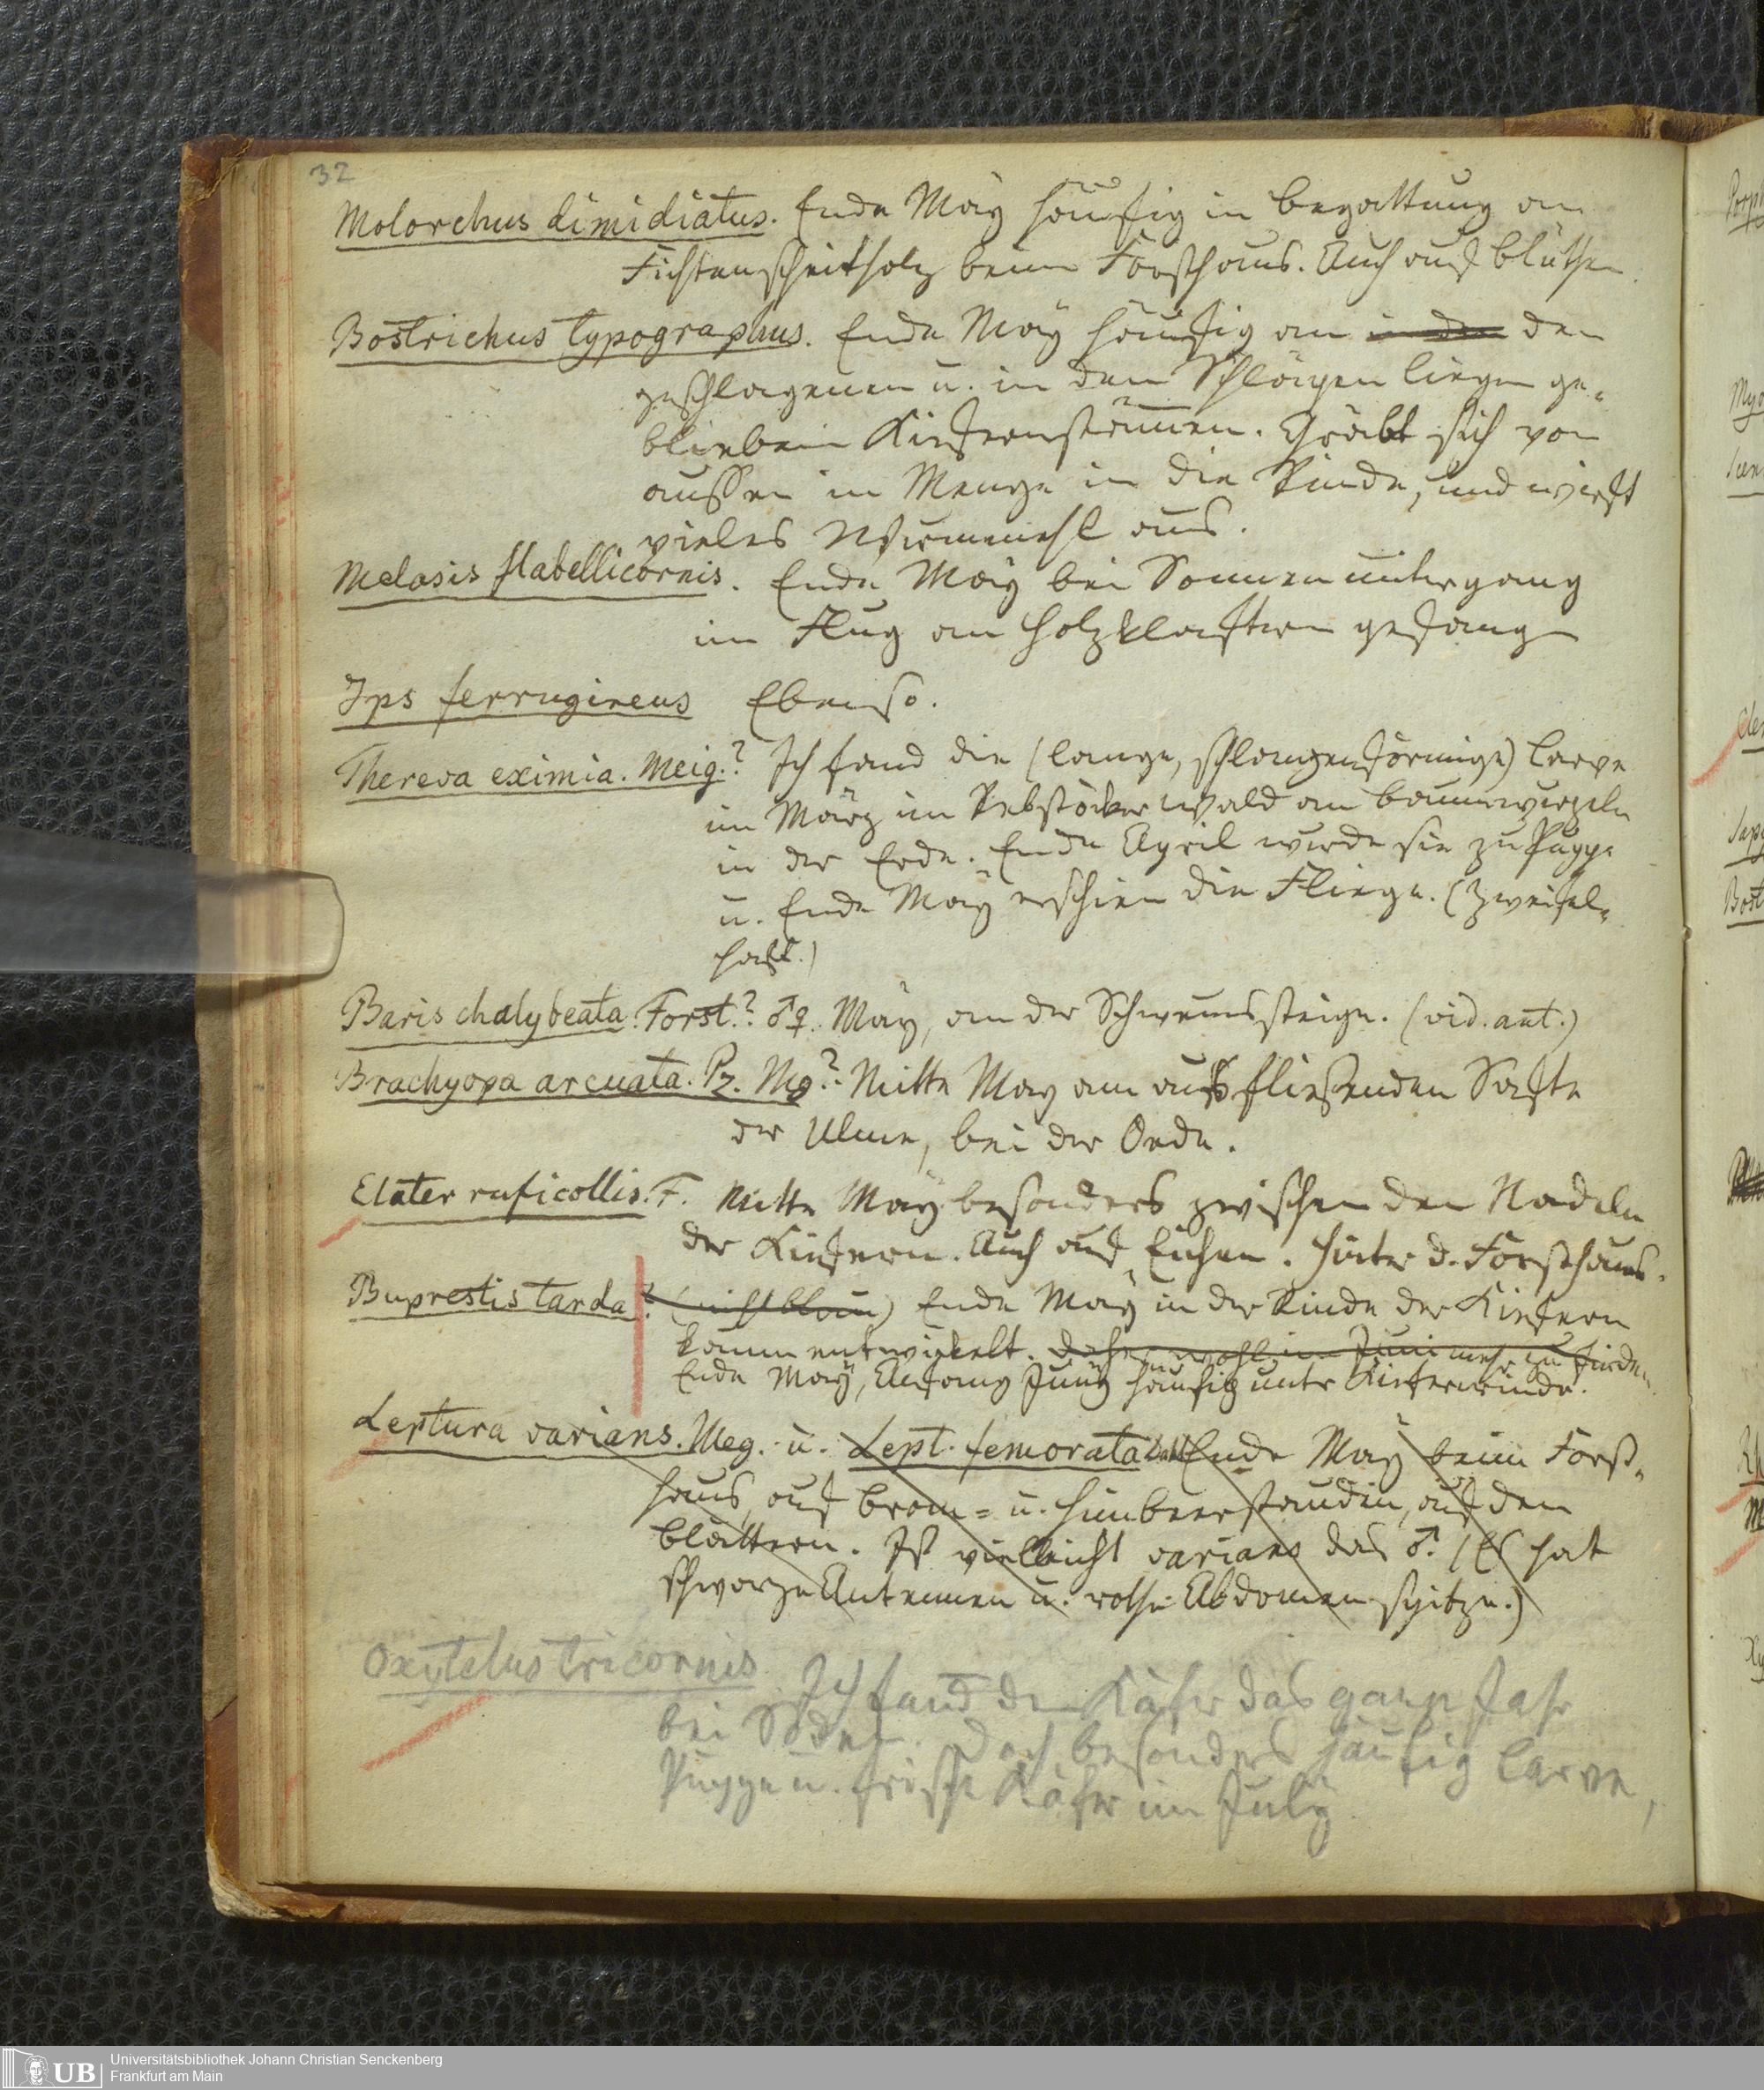 32
Molorchus dimidiatus. Ende Maÿ häufig in Begattung an
Fichtenscheitholz beim Forsthaus. Auch auf Blüthen
Bostrichus typographus. Ende Maÿ häufig an in den den
geschlagenen u. in den Schlägen liegen ge-
bliebenen Kiefernstämmen. Gräbt sich von
aussen in Menge in die Rinde, und wirft
vieles Wurmmehl aus.
Melasis flabellicornis. Ende Maÿ bei Sonnenuntergang
im Flug an Holzklaftern gefangen
Ips ferrugineus Ebenso.
Thereva eximia. Meig.? Ich fand die (lange, schlangenförmige) Larve
im März im Rebstöcker Wald an Baumwurzeln
in der Erde. Ende April wurde sie zu Puppe
u. Ende Maÿ erschien die Fliege. (Zweifel-
haft.)
Baris chalybeata. Forst.? ♂♀. Maÿ, an der Schweinssteige. (vid. ant.)
Brachyopa arcuata. Pz. Mg? Mitte Maÿ am ausfließenden Safte
der Ulme, bei der Oede.
Elater ruficollis. F. Mitte Maÿ besonders zwischen den Nadeln
der Kiefern. Auch auf Eichen. Hinter d. Forsthaus.
Buprestis tarda? (nicht blau) Ende Maÿ in der Rinde der Kiefern
kaum entwickelt. Daher wohl im Juni mehr zu finden.
Ende Maÿ, Anfang Junÿ häufig unter Kiefernrinde.
Leptura varians. Meg. u. Lept. femorata Ende Maÿ beim Forst-
haus, auf Brom- u. Himbeerstauden, auf den
Blättern. Ist vielleicht varians das ♂. (Es hat
schwarze Antennen u. rothe Abdomenspitze.)
Oxytelus tricornis Ich fand den Käfer das ganze Jahr
bei Soden. Doch besonders häufig Larve,
Puppe u. frische Käfer im Julÿ.
UB
Universitätsbibliothek Johann Christian Senckenberg
Frankfurt am Main